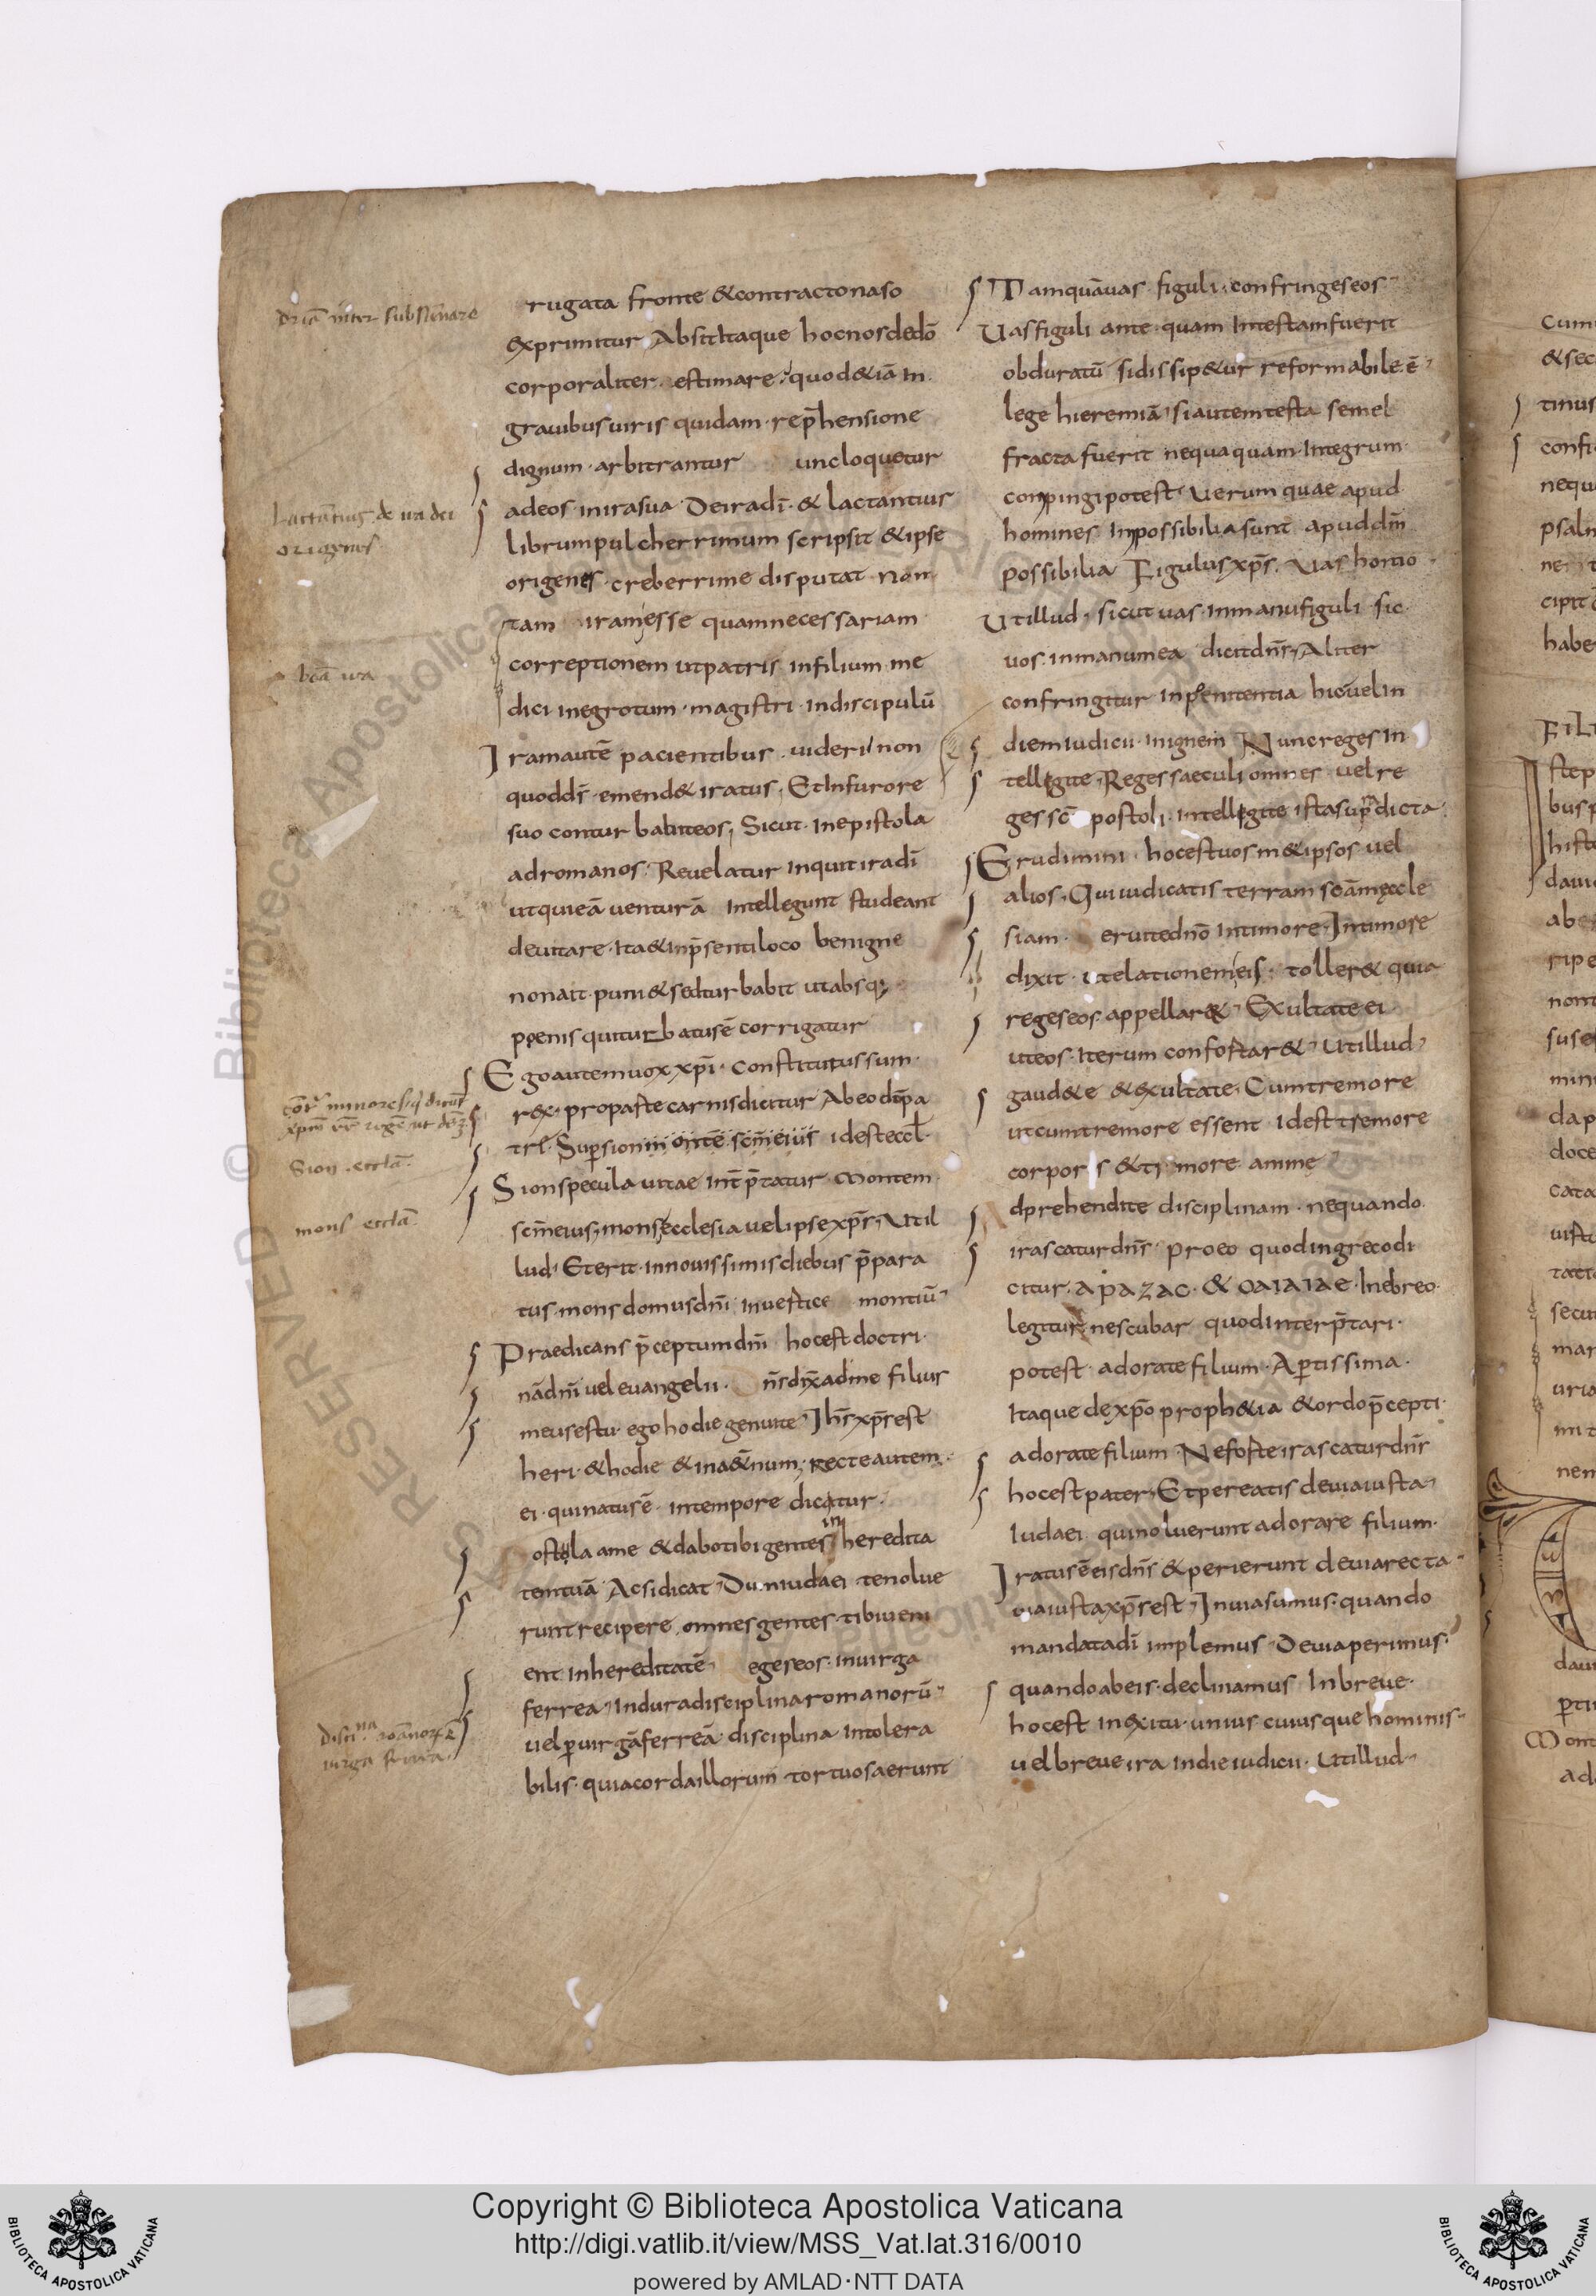 rugata fronte & contracto naso
exprimitur Absit Itaque hoc nos de dō
corporaliter · estimare · quod & iā in
grauibus uiris quidam · rep̄hensione
dignum · arbitrantur unc loquetur
ad eos · in ira sua · De ira dī · & lactantius
librum pulcherrimum scripsit & ipse
origenes · creberrime disputat non
tam iram esse quam necessariam
correptionem ut patris in filium me
dici · in egrotum · magistri · in discipulū
Iram autē pacientibus · uideri non
quod ds̄ · emend& iratus · Et in furore
suo conturbabit eos, Sicut · in epistola
ad romanos · Reuelatur inquit ira dī
ut qui eā venturā Intellegunt studeant
deuitare · Ita & in p̄senti loco benigne
non ait · puni& sed turbabit ut absq;
poenis qui turbatus ē corrigatur
Ego autem uox xp̄i · constitutus sum
rex · pro parte carnis dicitur Ab eo dī pa
tre · Super sion montē · sc̄m eius id est eccl̄
Sion specula uitae int̄p̄tatur montem
sc̄m eius, mons ecclesia uel ipse xp̄s, Ut il
lud · Et erit · in nouissimis diebus p̄para
tus · mons domus dn̄i in uertice montiū
Praedicans p̄ceptum dn̄i hoc est doctri
nā dn̄i uel euangelii · n̄s dix̄ ad me filius
meus es tu · ego hodie genui te Ih̄s xp̄s est
heri · & hodie & in aet̄num · Recte autem
ei · qui natus ē · in tempore dicatur
ostula a me & dabo tibi gentes in heredita
tem tuā Ac si dicat Dum iudaei te nolue
runt recipere omnes gentes · tibi ueni
ent in hereditatē eges eos · in uirga
ferrea In dura disciplina romanorū
uel per uirgā ferreā · disciplina Intolera
bilis · quia corda illorum tortuosa erunt
Tamquā uas figuli · confringes eos
Uas figuli ante quam In testam fuerit
obduratū si dissipetur reformabile ē
lege hieremiā si autem testa semel
fracta fuerit nequaquam Integrum
conpingi potest Uerum quae apud
homines Inpossibilia sunt apud dm̄
possibilia Figulus xp̄s, Uas homo
Ut illud · sicut uas · in manu figuli sic
uos · in manu mea dicit dn̄s Aliter
confringitur in penitentia hic uel in
diem iudicii in ignem Nunc reges in
tellegite, Reges saeculi omnes uel re
ges sc̄ postoli · Intellegite ista supra dicta
Erudimini · hoc est uos met ipsos uel
alios, Qui iudicatis terram scām eccle
siam · eruite dn̄o In timore In timore
dixit · ut elationem eis · toller& quia
reges eos appellar& Exultate ei
ut eos · Iterum confortar& Ut illud
gaud&e & exultate, Cum tremore
ut cum tremore essent Id est tremore
corporis & timore anime
dprehendite disciplinam · nequando
irascatur dn̄s · pro eo quod in greco di
citur · apazac · & oaiaiae · In ebreo
legitur nescubar quod interp̄tari
potest · adorate filium · Apertissima ·
Itaque de xp̄o prophetia & ordo p̄cepti
adorate filium · Ne forte irascatur dn̄s
hoc est pater, Et pereatis de uia iusta
Iudaei qui noluerunt adorare filium
Iratus ē eis dn̄s & perierunt de uia recta
uia iusta xp̄s est In uia sumus · quando
mandata dī implemus De uia perimus
quando ab eis · declinamus In breue
hoc est in exitu · unius cuius que hominis
uel breue ira in die iudicii · Ut illud
Lactātius de ira dei
origenes
Sion · ecclā
mons ecclā
Copyright © Biblioteca Apostolica Vaticana
http://digi.vatlib.it/view/MSS_Vat.lat.316/0010
powered by AMLAD·NTT DATA
BIBLIOTECA APOSTOLICA VATICANA
BIBLIOTECA APOSTOLICA VATICANA